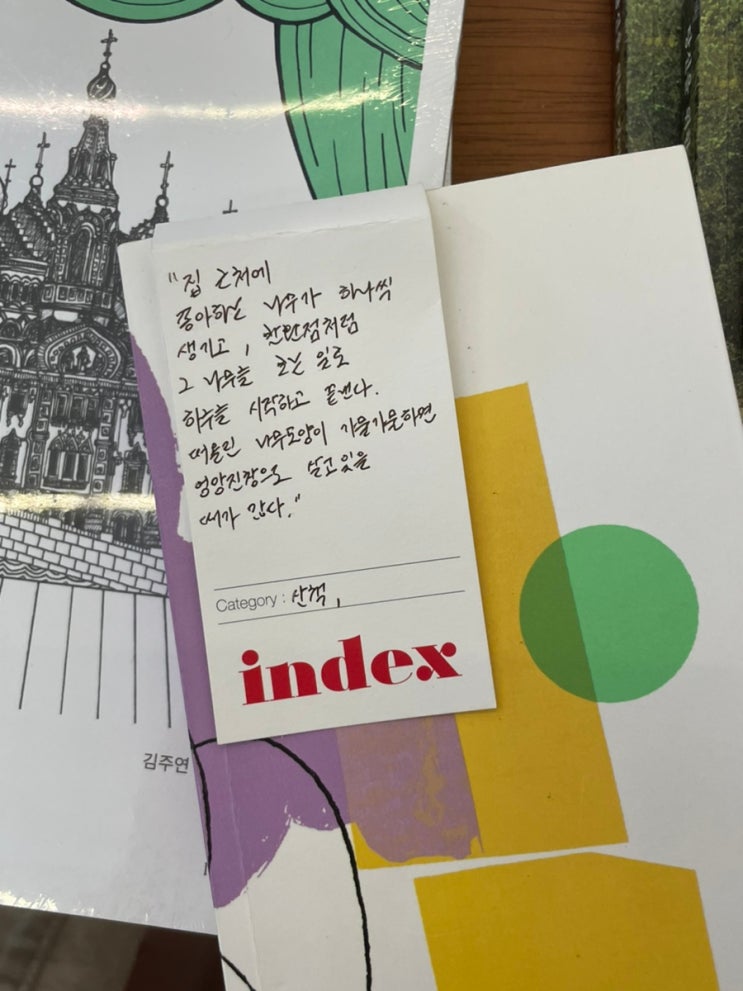 "집 근처에
좋아하는 나무가 하나씩
생기고, 찬반점처럼
그 나무를 보는 일로
하루를 시작하고 끝낸다.
떠올린 나무모양이 가물가물하면
엉망진창으로 살고있을
때가 많다."
Category : 산책,
index
김주연